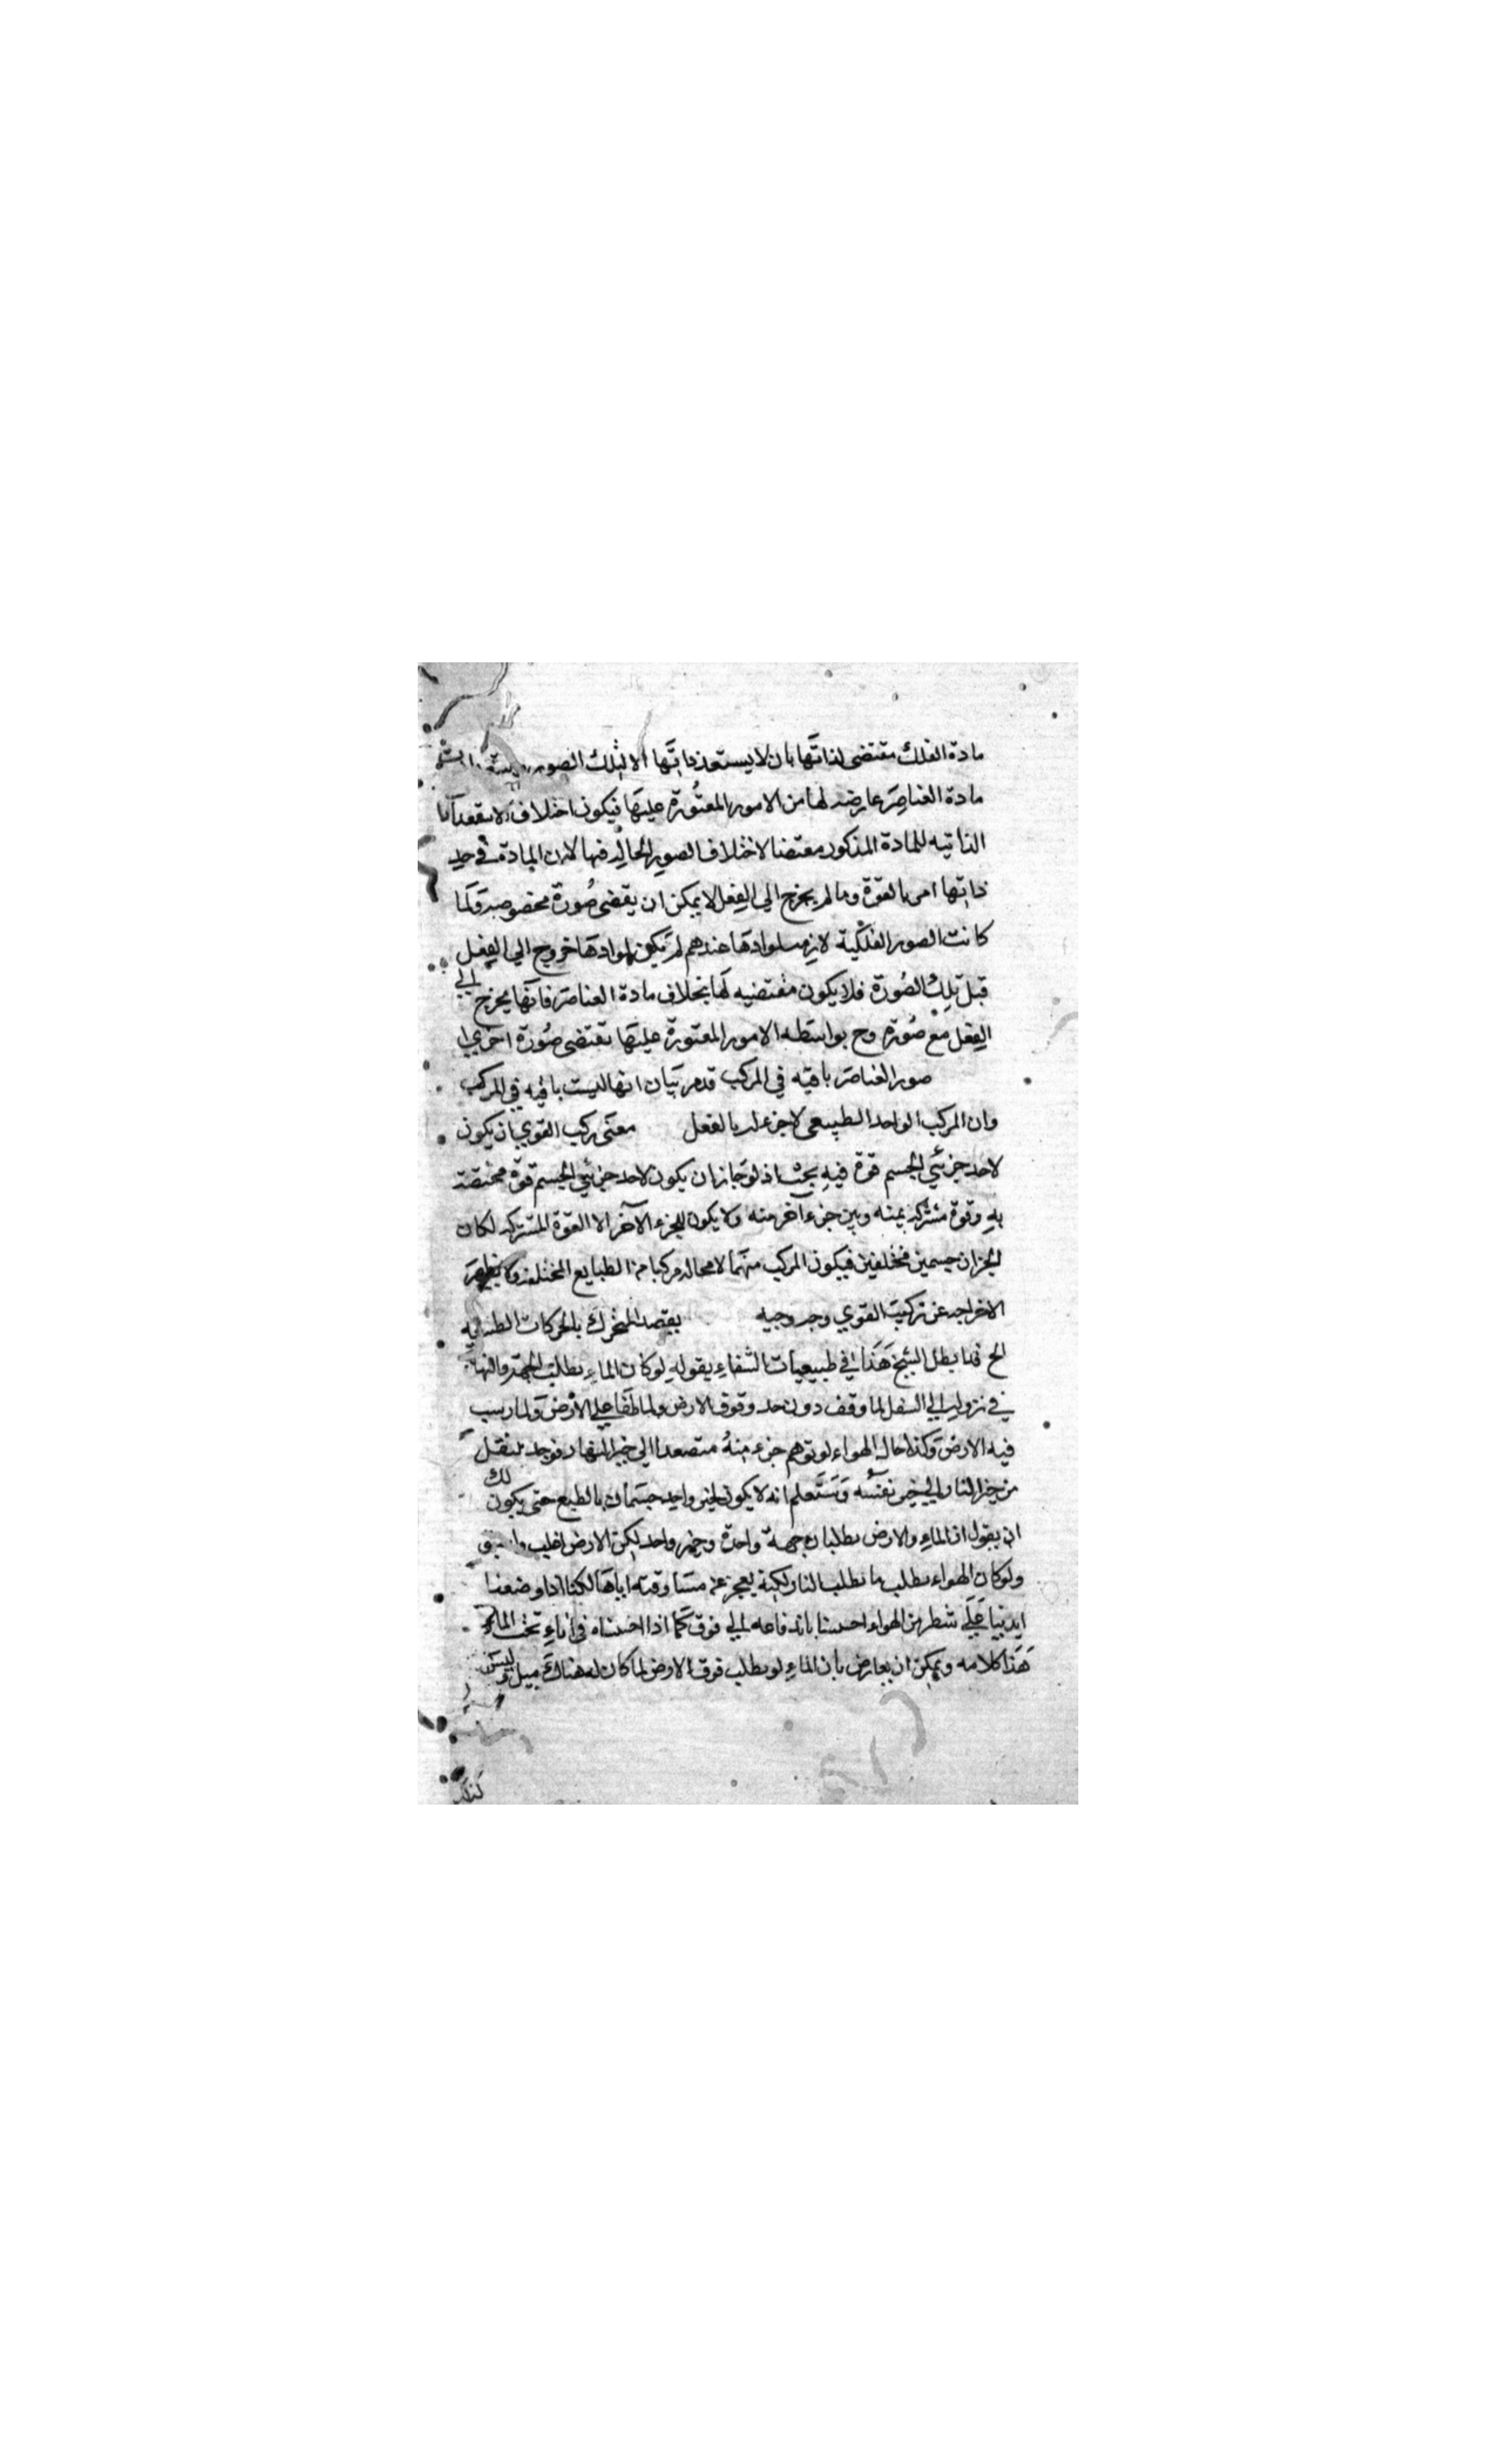 مادة الفلك مقتضى لذاتها بان لا يستعد ذاتها الا لتلك الصور
مادة العناصر عارضه لها من الامور المعتورة عليها فيكون اختلاف الاستعدادات
الذاتيه للمادة المذكور مقتضيا لاختلاف الصور الحالة فيها لان المادة في حد
ذاتها امر بالقوة وما لم يخرج الي الفعل لا يمكن ان يقتضى صورة مخصوصة ولما
كانت الصور الفلكية لازمة لموادها عندهم لم يكن لموادها خروج الي الفعل
قبل تلك الصورة فلا يكون مقتضيه لها بخلاف مادة العناصر فانها يخرج الي
الفعل مع صورة وح بواسطه الامور المعتورة عليها تقتضى صورة اخري
صور العناصر باقيه في المركب قد مر بيان انها ليست باقيه في المركب
وان المركب الواحد الطبيعى لا جزء له بالفعل معنى تركب القوي بان يكون
لاحد جزئي الجسم قوة فيه بحث اذ لو جاز ان يكون لاحد جزئي الجسم قوة مختصة
به وقوة مشتركة بينه وبين جزء آخر منه ولا يكون للجزء الآخر الا القوة المشتركه لكان
الجزان جسمين مختلفين فيكون المركب منهما لا محاله مركبا من الطبايع المختلفة ولا يظهر
لاخراجه عن تركيب القوي وجه وجيه يقصد المتحرك بالحركات
الخ قد ابطل الشيخ هذا في طبيعيات الشفاء بقوله لو كان الماء يطلب الجهة
في نزوله الي السفل لما وقف دون حد وقوف الارض ولما طفا علي الارض ولما رسب
فيه الارض وكذا حال الهواء لو توهم جزء منه متصعدا الي حيز النار فوجد ينتقل
من حيز النار الي حيز نفسه وستعلم انه لا يكون لحيز واحد جسمان بالطبع حتى يكون لك
ان يقول ان الماء والارض يطلبان جهة واحدة وحيز واحد لكن الارض اغلب واسبق
ولو كان الهواء يطلب ما يطلب النار لكنه يعجز عن مساوقته اياها لكنا اذا وضعنا
ايدينا علي شطر من الهواء احسسنا باندفاعه الي فوق كما اذا احسسناه في اناء تحت الماء
هذا كلامه ويمكن ان يعارض بان الماء لو يطلب فوق الارض لما كان له هناك ميل وليس
كذلك